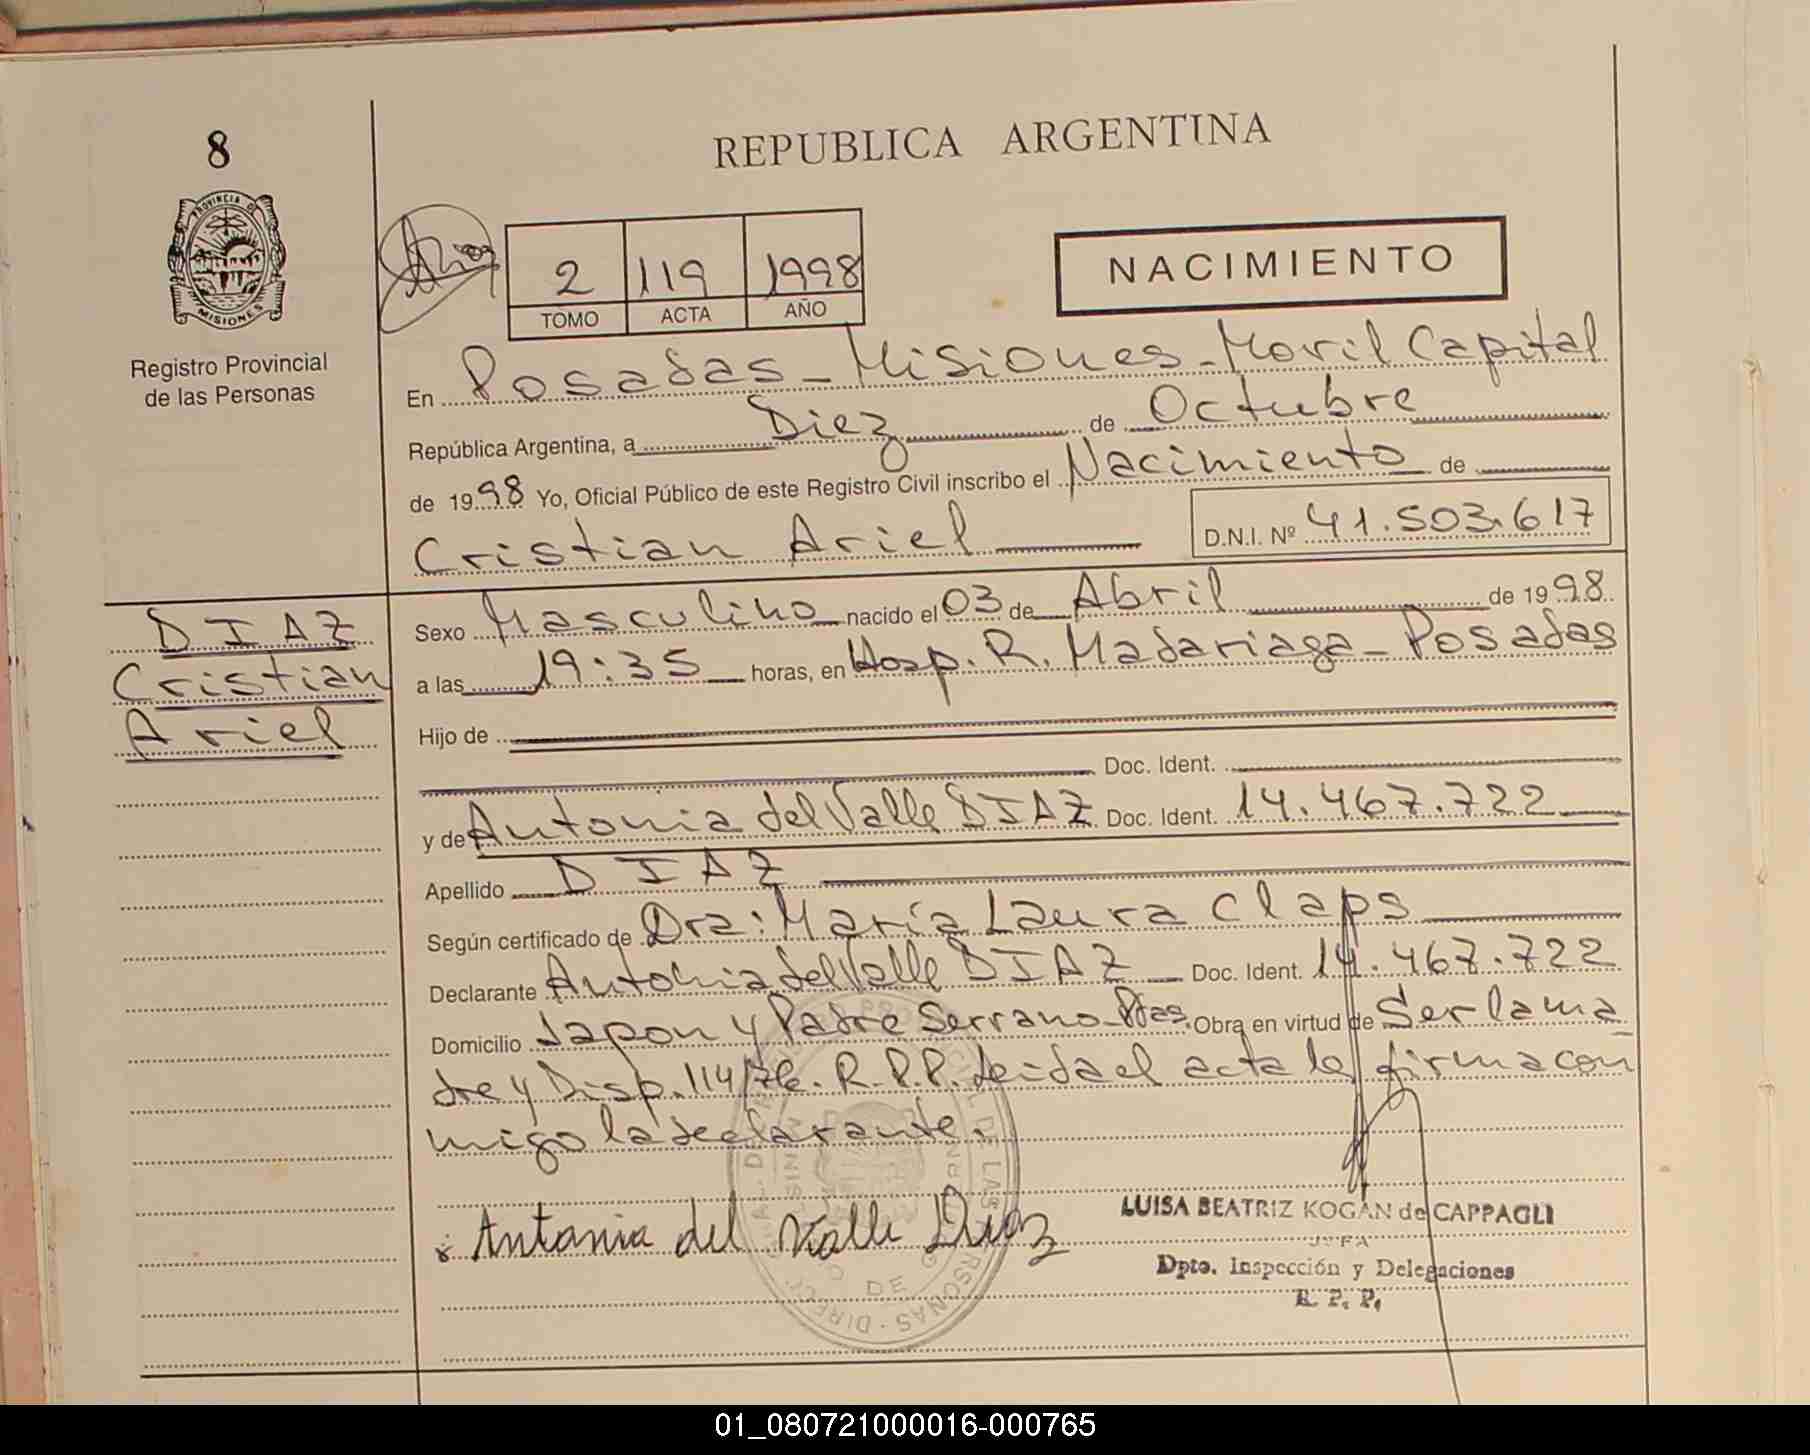 8
PROVINCIA DE
MISIONES
Registro Provincial
de las Personas
REPUBLICA ARGENTINA
2 119 1998
TOMO ACTA AÑO
NACIMIENTO
En Posadas - Misiones - Movil Capital
República Argentina, a Diez de Octubre
de 1998 Yo, Oficial Público de este Registro Civil inscribo el Nacimiento de
Cristian Ariel D.N.I. Nº 41.503.617
DIAZ
Cristian
Ariel
Sexo Masculino nacido el 03 de Abril de 1998
a las 19:35 horas, en Hosp. R. Madariaga - Posadas
Hijo de
Doc. Ident.
y de Antonia del Valle DIAZ Doc. Ident. 14.467.722
Apellido DIAZ
Según certificado de Dra: María Laura Claps
Declarante Antonia del Valle DIAZ Doc. Ident. 14.467.722
Domicilio Japon y Padre Serrano - Pdas. Obra en virtud de Ser la ma
dre y Disp. 114/76. R.P.P. Leida el acta la firma con
migo la declarante.
Antonia del Valle Diaz
LUISA BEATRIZ KOGAN de CAPPAGLI
JEFA
Dpto. Inspección y Delegaciones
R. P. P.
01_080721000016-000765